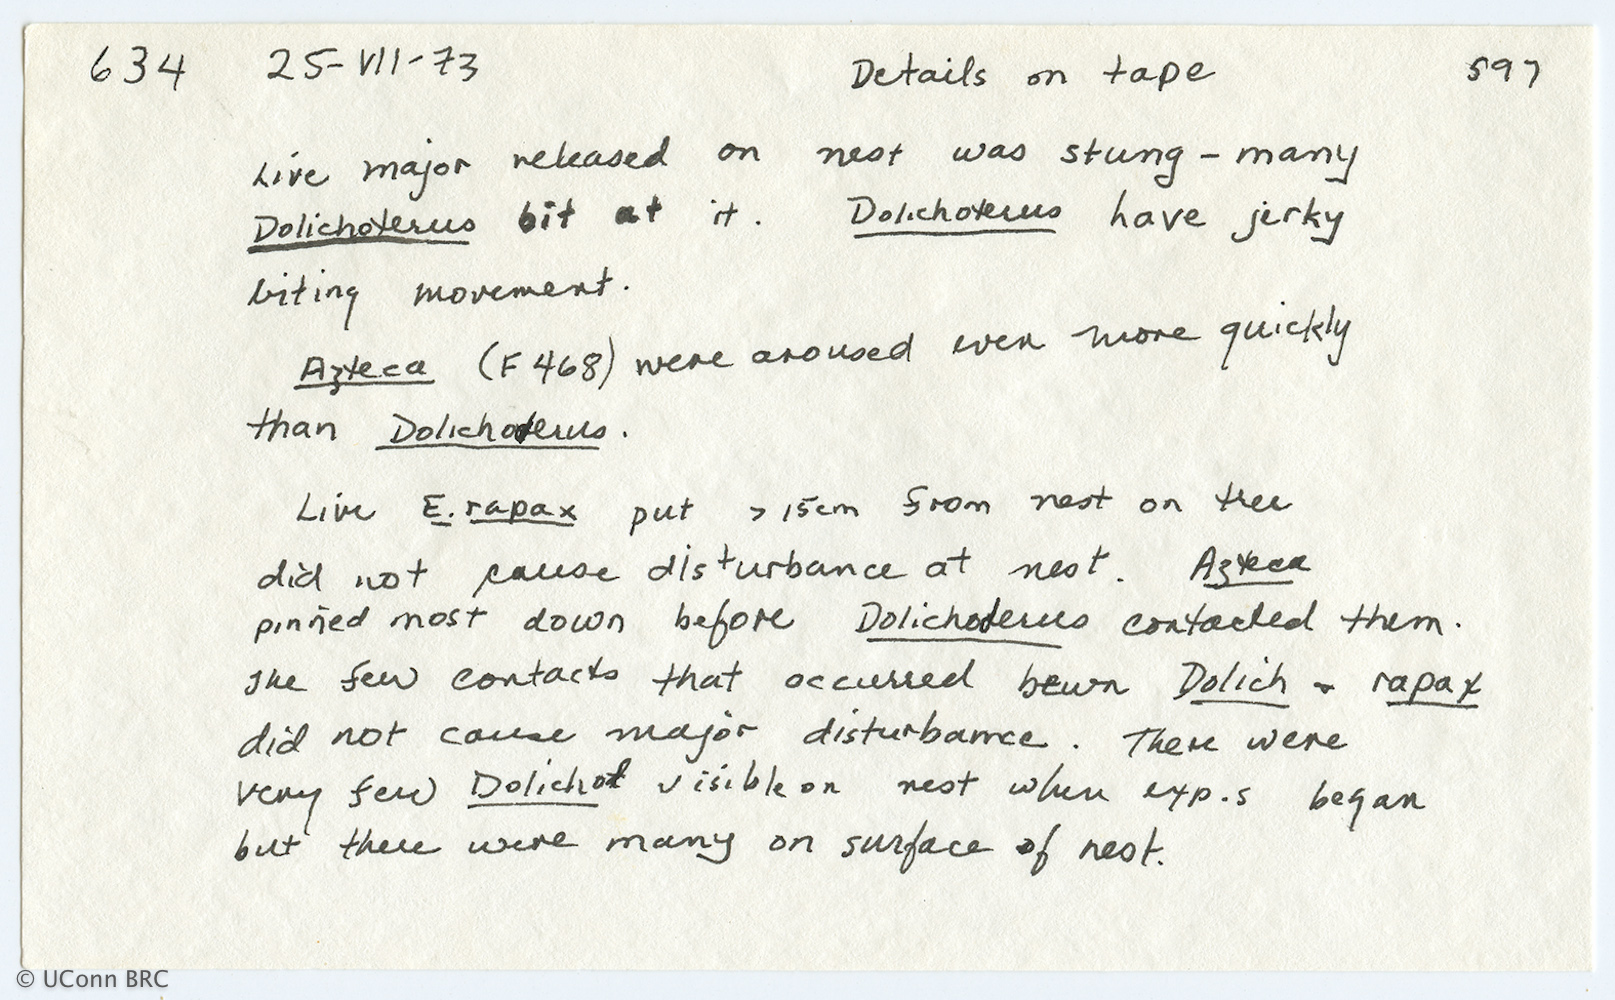 634 25-VII-73 Details on tape 597
Live major released on nest was stung - many
Dolichoterus bit at it. Dolichoterus have jerky
biting movement.
Azteca (F 468) were aroused even more quickly
than Dolichoderus.
Live E. rapax put > 15cm from nest on tree
did not cause disturbance at nest. Azteca
pinned most down before Dolichoderus contacted them.
The few contacts that occurred betwn Dolich & rapax
did not cause major disturbance. There were
very few Dolichod visible on nest when exp.s began
but there were many on surface of nest.
© UConn BRC